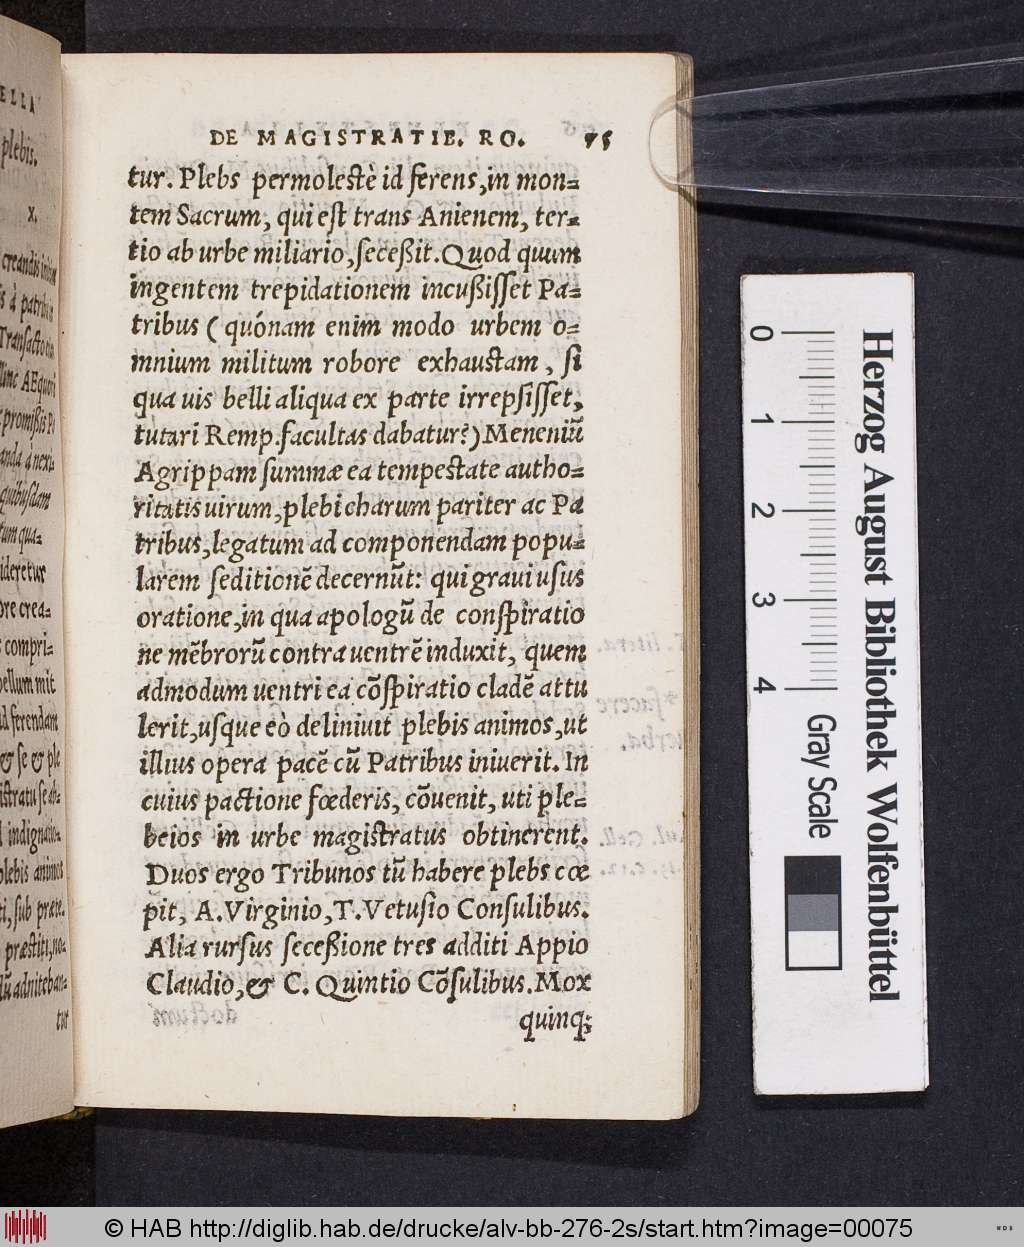 ELLA
plebis.
X.
DE MAGISTRATIB. RO. 75
tur. Plebs permolestè id ferens, in mon-
tem Sacrum, qui est trans Anienem, ter-
tio ab urbe miliario, seceßit. Quod quum
ingentem trepidationem incußisset Pa-
tribus ( quónam enim modo urbem o-
mnium militum robore exhaustam, si
qua uis belli aliqua ex parte irrepsisset,
tutari Remp. facultas dabatur?) Meneniũ
Agrippam summæ ea tempestate autho-
ritatis uirum, plebi charum pariter ac Pa
tribus, legatum ad componendam popu-
larem seditionẽ decernũt: qui graui usus
oratione, in qua apologũ de conspiratio
ne mẽbrorũ contra uentrẽ induxit, quem
admodum uentri ea cõspiratio cladẽ attu
lerit, usque eò deliniuit plebis animos, ut
illius opera pacẽ cũ Patribus iniuerit. In
cuius pactione fœderis, cõuenit, uti ple-
beios in urbe magistratus obtinerent.
Duos ergo Tribunos tũ habere plebs cœ
pit, A. Virginio, T. Vetusio Consulibus.
Alia rursus seceßione tres additi Appio
Claudio, & C. Quintio Cõsulibus. Mox
quinq;
0 1 2 3 4
Gray Scale
Herzog August Bibliothek Wolfenbüttel
© HAB http://diglib.hab.de/drucke/alv-bb-276-2s/start.htm?image=00075